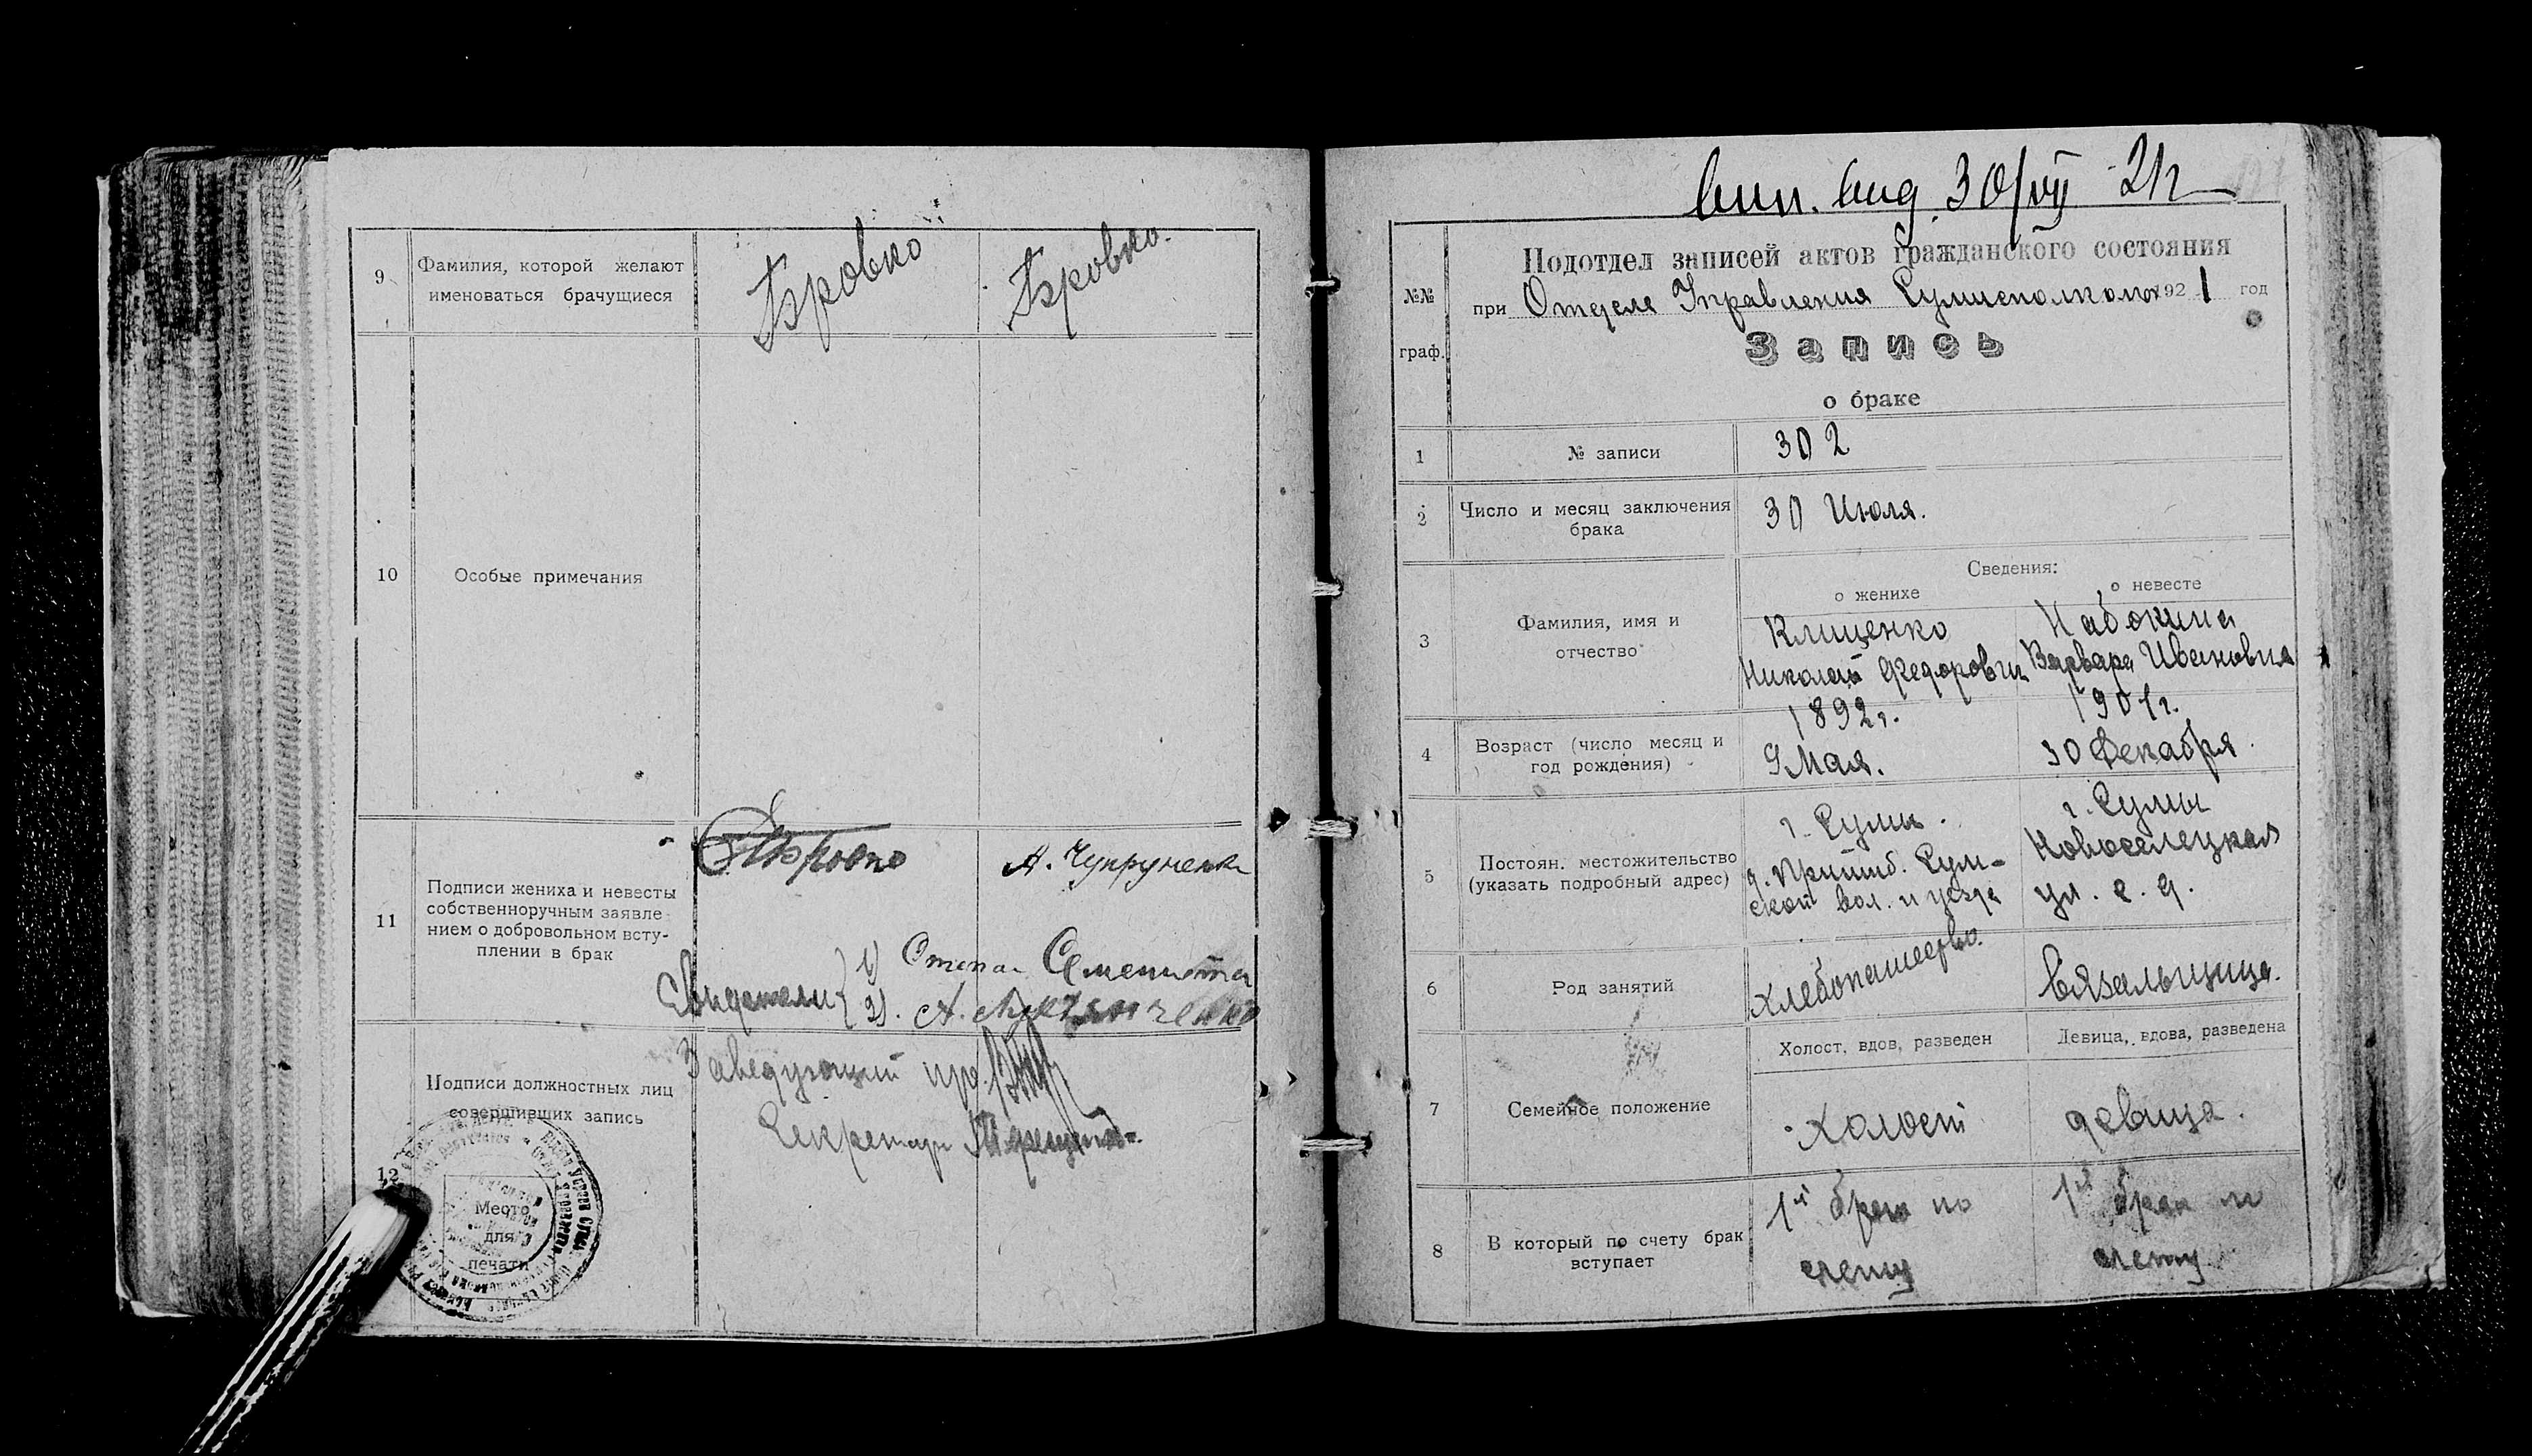 9
Фамилия, которой желают
именоваться брачущиеся
Бровко
Бровко.
10
Особые примечания
11
Подписи жениха и невесты
собственноручным заявле-
нием о добровольном всту-
плении в брак
Бровко
А. Чупруненко
Свидетели
1) Степан
2). А.
12
Подписи должностных лиц
совершивших запись
Заведующий
Секретарь
Место
для
печати
вып. выд. 30/VII 21 г
№№
граф.
Подотдел записей актов гражданского состояния
при Отделе Управления Сумисполкома 1921 год
Запись
о браке
1
№ записи
302
2
Число и месяц заключения
брака
30 Июля.
Сведения:
о женихе
о невесте
3
Фамилия, имя и
отчество
Клищенко
Николай Федорович
Набокина
Варвара Ивановна
4
Возраст (число месяц и
год рождения)
1892 г.
9 Мая.
1901 г.
30 Декабря.
5
Постоян. местожительство
(указать подробный адрес)
г. Сумы.
д. Пришиб. Сум-
ской вол. и уезда
г. Сумы
Новоселецкая
ул. с. д.
6
Род занятий
хлебопашество.
Вязальщица.
7
Семейное положение
Холост, вдов, разведен
Девица, вдова, разведена
Холост
девица.
8
В который по счету брак
вступает
1й брак по
счету
1й брак по
счету